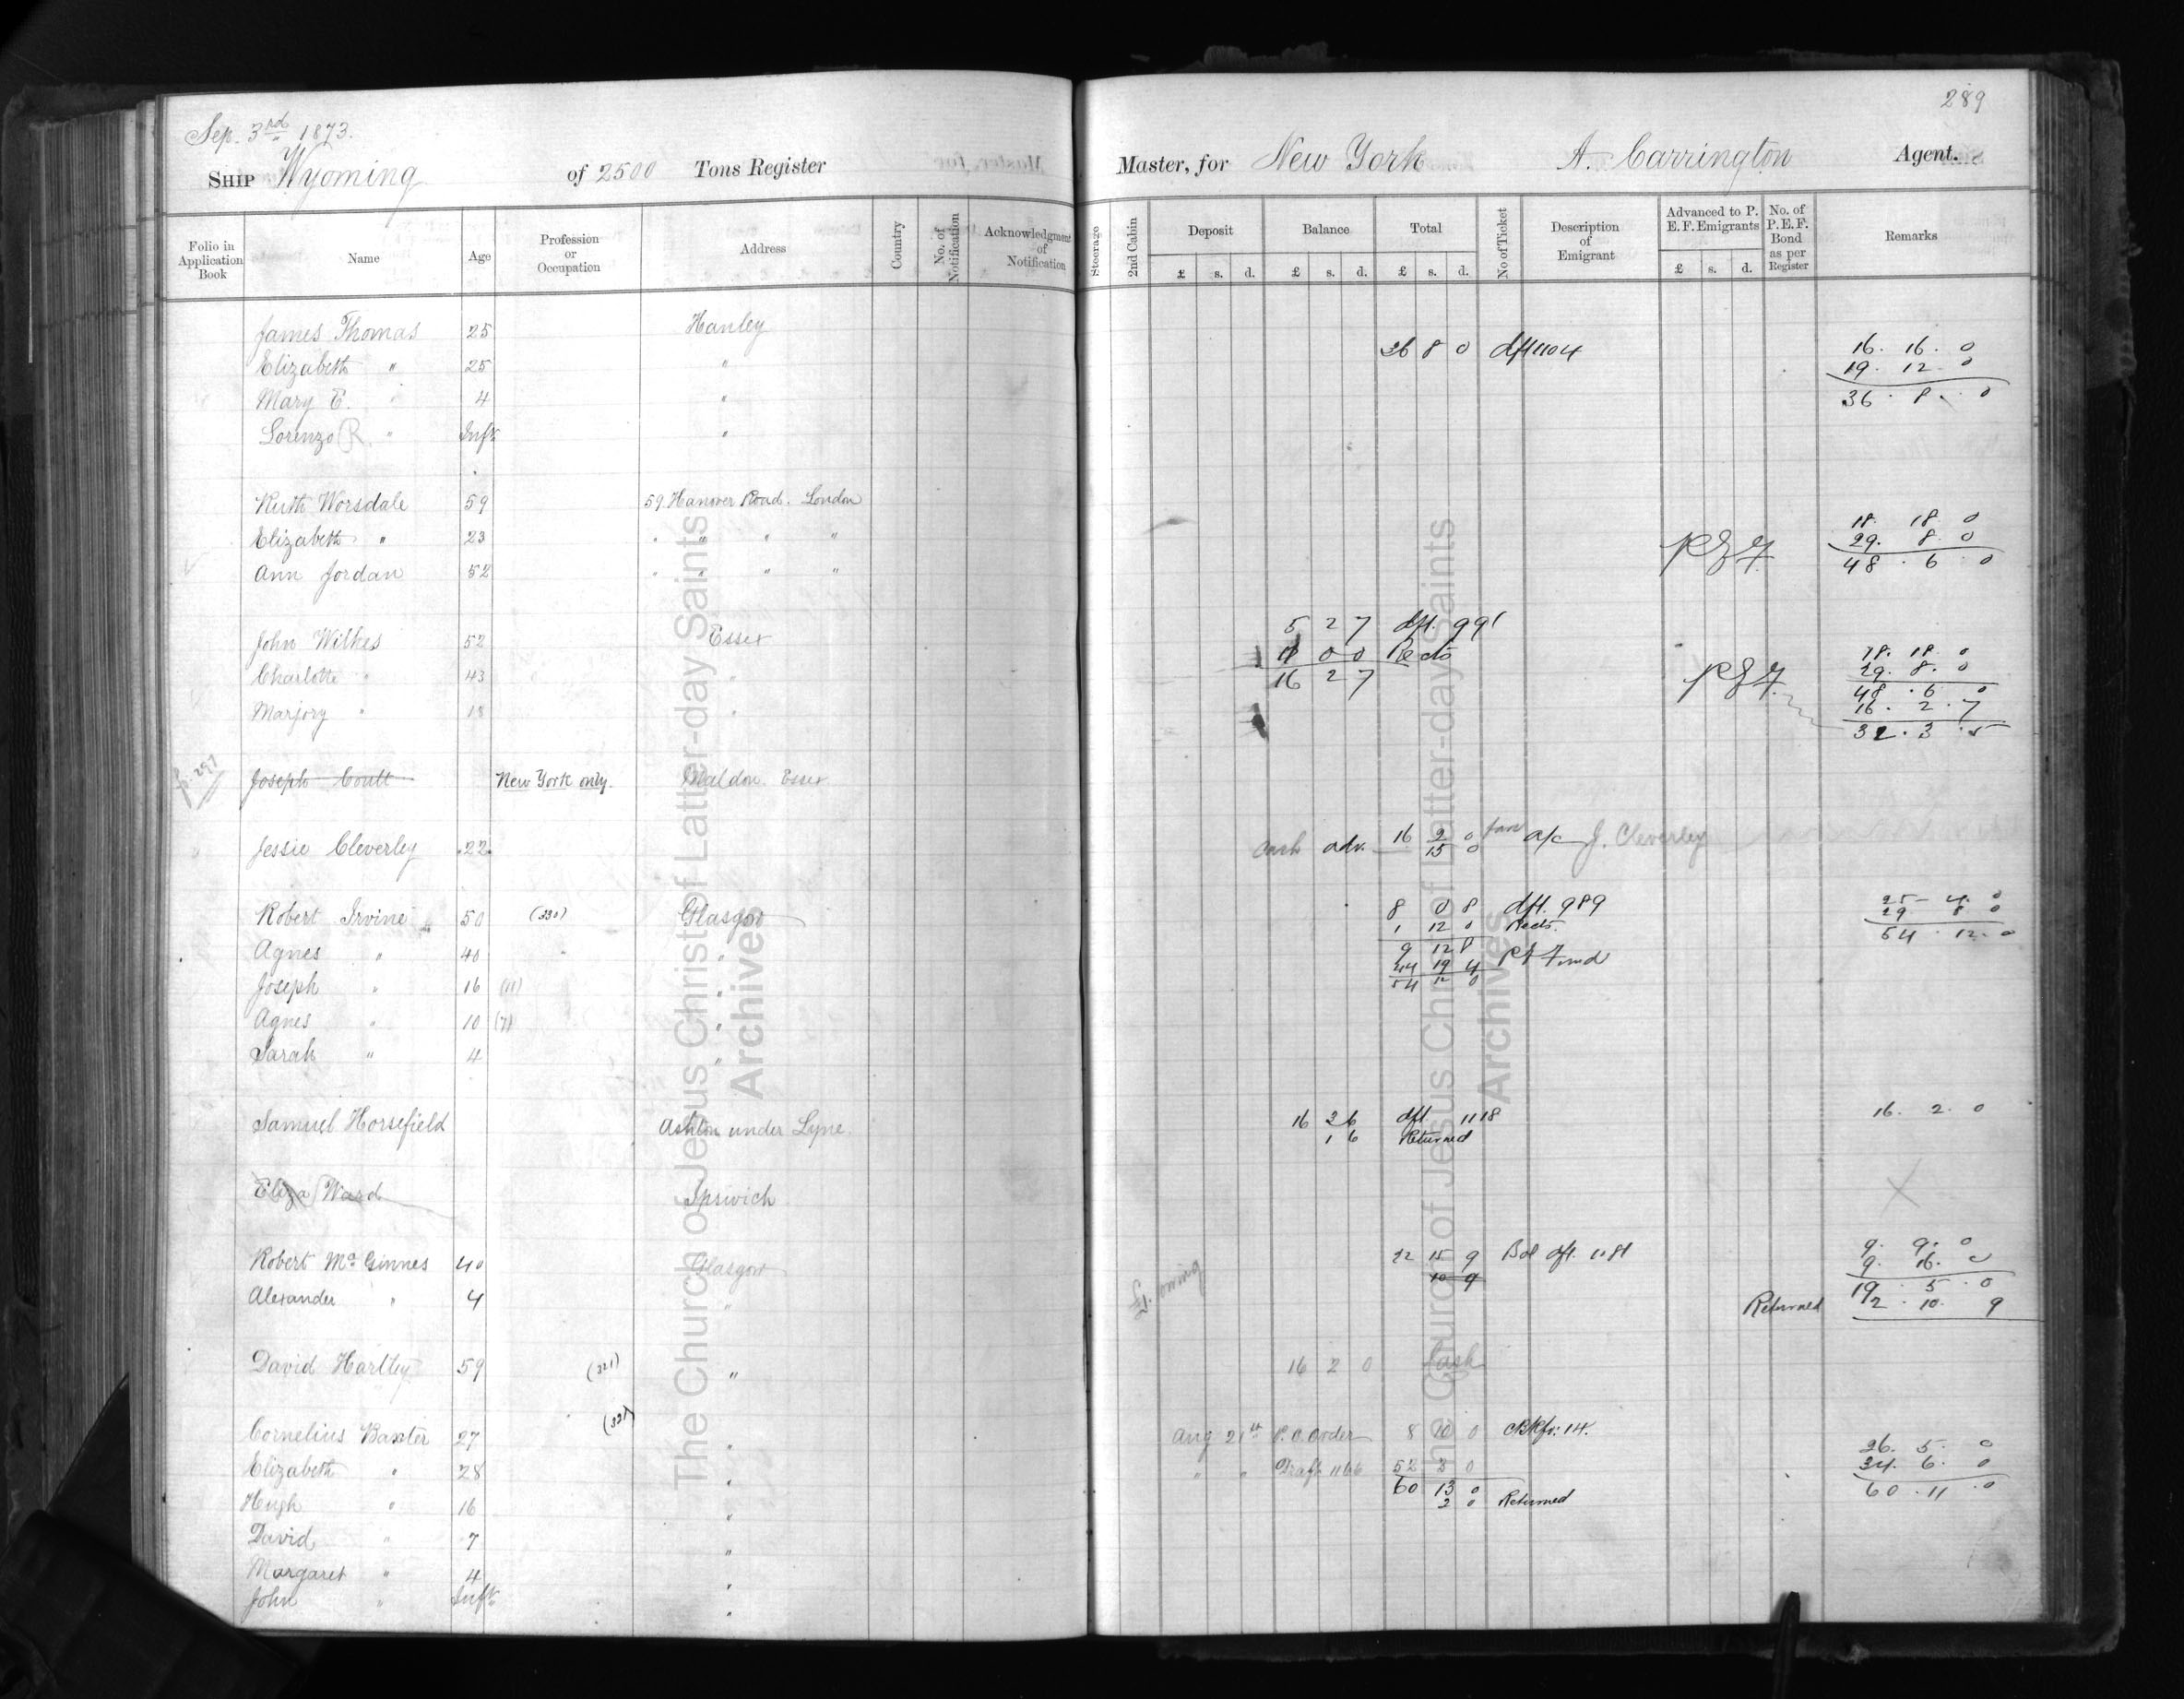 289
Sep. 3rd 1873.
Ship Wyoming of 2500 Tons Register Master, for New York A. Carrington Agent.
Folio in Application Book Name Age Profession or Occupation Address Country No. of Notification Acknowledgment of Notification Steerage 2nd Cabin Deposit Balance Total No of Ticket Description of Emigrant Advanced to P. E. F. Emigrants No. of P. E. F. Bond as per Register Remarks
£ s. d. £ s. d. £ s. d. £ s. d.
James Thomas 25 Hanley
Elizabeth " 25 " 36 8 0 dft 1104 16. 16. 0
19. 12. 0
Mary E. " 4 " 36. 8. 0
Lorenzo R. " Inft "
Ruth Worsdale 59 59 Hanover Road. London
Elizabeth " 23 " " " " P E F 18. 18 0
29. 8. 0
Ann Jordan 52 " " " " 48. 6. 0
John Wilkes 52 Essex 5 2 7 dft. 991
0 0 Rects 18. 18. 0
Charlotte " 43 " 16 2 7 P E F 29. 8. 0
48. 6. 0
Marjory " 18 " 16. 2. 7
32. 3. 5
p. 297 Joseph Coult New York only. Maldon. Essex
Jessie Cleverley 22. Cash adv. 16 2 0 fare a/c J. Cleverley
15 0
Robert Irvine 50 (330) Glasgow 8 0 8 dft. 989 25 4. 0
1 12 0 Rects. 29 8 0
Agnes " 40 " 9 12 8 54. 12. 0
44 19 4 P E Fund
Joseph " 16 (11) " 54 12 0
Agnes " 10 (7) "
Sarah " 4 "
Samuel Horsefield Ashton under Lyne. 16 3 6 dft 1118 16. 2. 0
1 6 Returned
Eliza Ward Ipswich X
Robert McGinnes 40 Glasgow 22 15 9 Bal dft. 1181 9. 9. 0
10 9 9. 16. 0
19. 5. 0
Alexander " 4 " Returned 2. 10. 9
David Hartley 59 (321) " 16 2 0 Cash
Cornelius Baxter 27 " Aug 21st P.O. Order 8 10 0
26. 5. 0
Elizabeth " 28 " " " Draft 1166 52 3 0 34. 6. 0
Hugh " 16 " 60 13 0 60. 11. 0
2 0 Returned
David " 7 "
Margaret " 4 "
John " Inft "
The Church of Jesus Christ of Latter-day Saints
Archives
The Church of Jesus Christ of Latter-day Saints
Archives